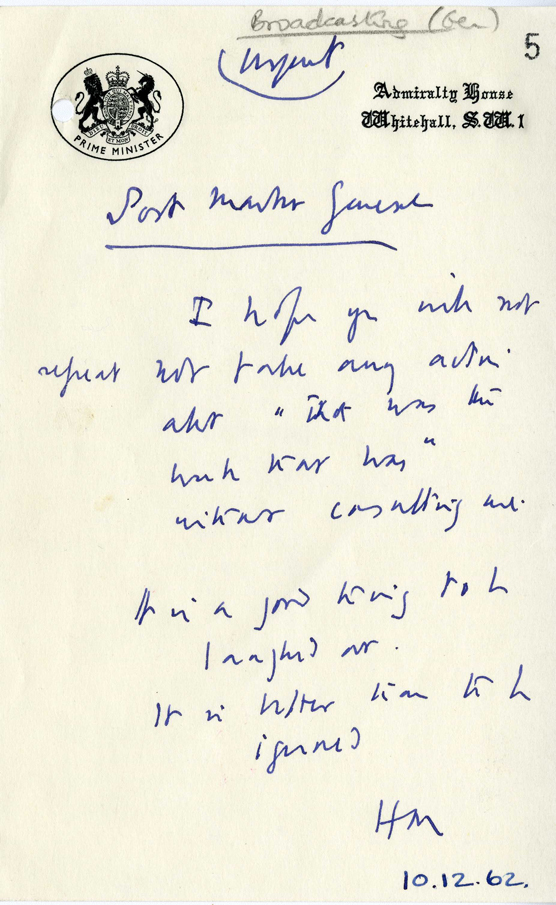 Broadcasting (Gen)
5
Urgent
PRIME MINISTER
Admiralty House
Whitehall, S.W.1
Post Master General
I hope you will not
repeat not take any action
about "That was the
week that was"
without consulting me.
It is a good thing to be
laughed at.
It is better than to be
ignored
HM
10.12.62.